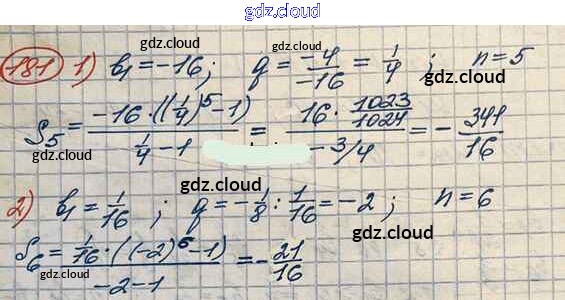 gdz.cloud
181 1) b₁ = -16; q = -4/-16 = 1/4; n = 5
gdz.cloud gdz.cloud
S₅ = -16 · ((1/4)⁵ - 1) / (1/4 - 1) = 16 · 1023/1024 / -3/4 = - 341/16
gdz.cloud gdz.cloud
gdz.cloud
2) b₁ = 1/16; q = -1/8 : 1/16 = -2; n = 6
gdz.cloud gdz.cloud
S₆ = 1/16 · ((-2)⁶ - 1) / (-2 - 1) = - 21/16
gdz.cloud